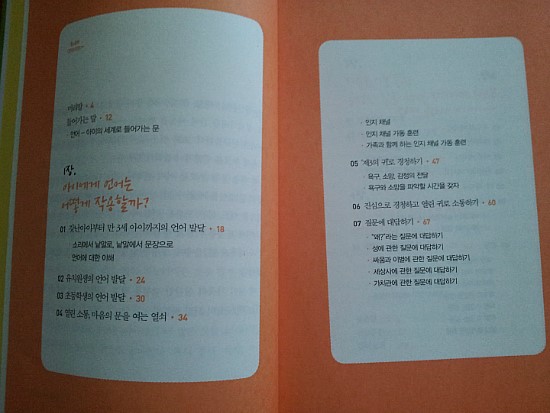 머리말 • 6
들어가는 말 • 12
언어 - 아이의 세계로 들어가는 문
1장.
아이에게 언어는
어떻게 작용할까?
01 갓난아이부터 만 3세 아이까지의 언어 발달 • 18
소리에서 낱말로, 낱말에서 문장으로
언어에 대한 이해
02 유치원생의 언어 발달 • 24
03 초등학생의 언어 발달 • 30
04 열린 소통, 마음의 문을 여는 열쇠 • 34
· 인지 채널
· 인지 채널 가동 훈련
· 가족과 함께 하는 인지 채널 가동 훈련
05 '제3의 귀'로 경청하기 • 47
· 욕구, 소망, 감정의 전달
· 욕구와 소망을 파악할 시간을 갖자
06 진심으로 경청하고 열린 귀로 소통하기 • 60
07 질문에 대답하기 • 67
· "왜?"라는 질문에 대답하기
· 성에 관한 질문에 대답하기
· 싸움과 이별에 관한 질문에 대답하기
· 세상사에 관한 질문에 대답하기
· 가치관에 관한 질문에 대답하기